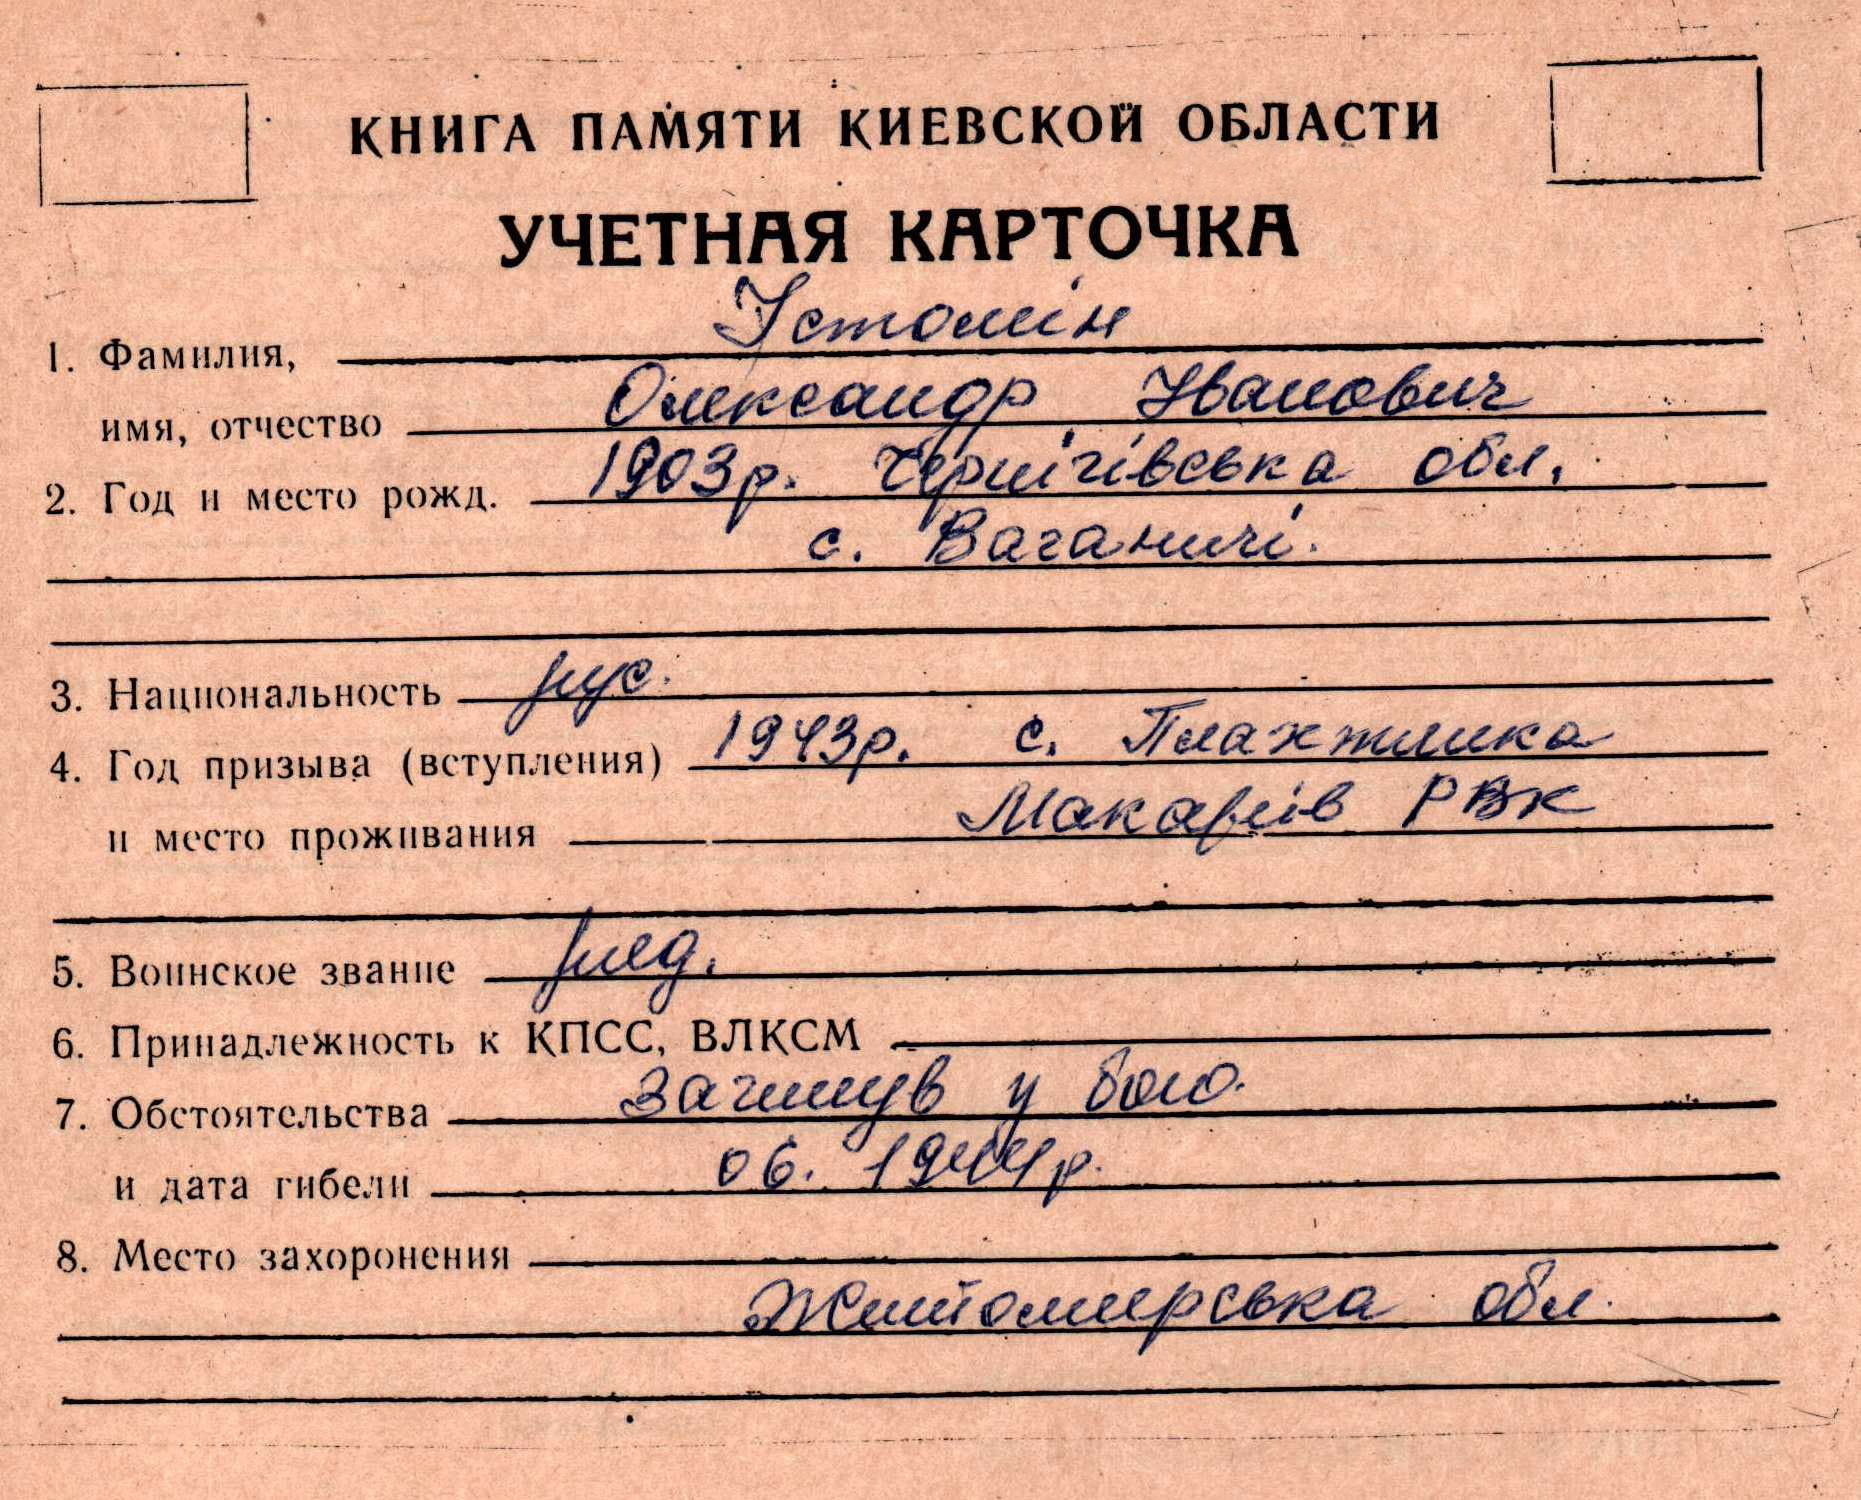 КНИГА ПАМЯТИ КИЕВСКОЙ ОБЛАСТИ
УЧЕТНАЯ КАРТОЧКА
1. Фамилия, Істомін
имя, отчество Олександр Іванович
2. Год и место рожд. 1903р. Чернігівська обл.
с. Ваганичі.
3. Национальность рус.
4. Год призыва (вступления) 1943р. с. Плахтянка
и место проживания Макарів РВК
5. Воинское звание ряд.
6. Принадлежность к КПСС, ВЛКСМ
7. Обстоятельства Загинув у бою.
и дата гибели 06. 1944р.
8. Место захоронения
Житомирська обл.